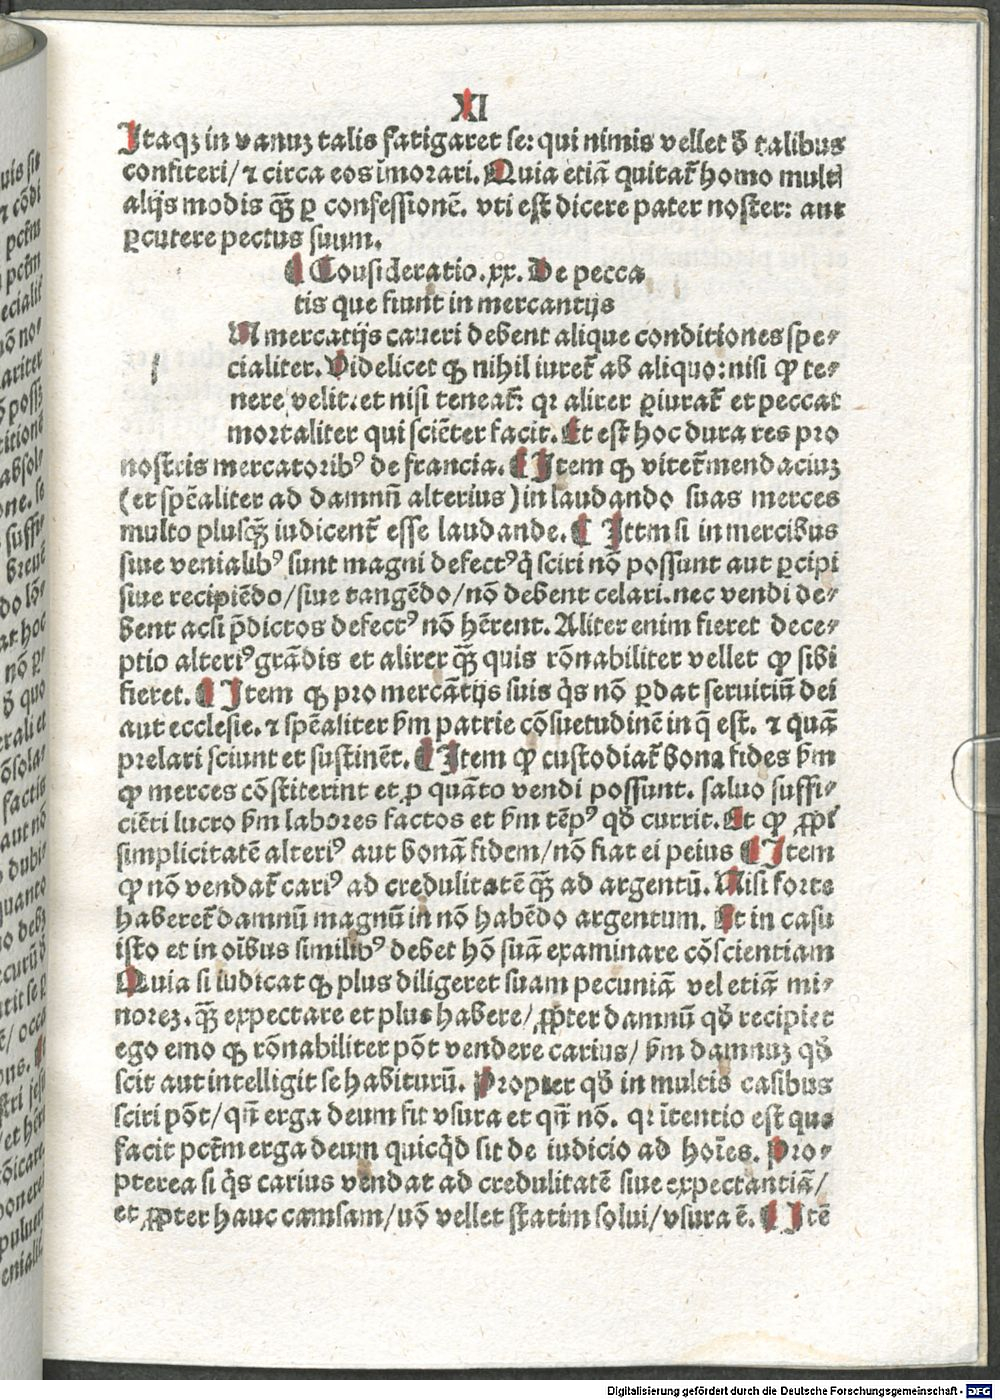 XI
Itaqꝫ in vanuꝫ talis fatigaret se: qui nimis vellet ð talibus
confiteri/ ⁊ circa eos ĩmorari. Quia etiã quitat̃ homo mult
alijs modis q̃ꝫ ꝑ confessionẽ. vti est dicere pater noster: aut
ꝑcutere pectus suum.
¶ Cousideratio .xx. De pecca
tis que fiunt in mercantijs
N mercatijs caueri debent alique conditiones spe⸗
cialiter. Videlicet ꝙ nihil iuret̃ ab aliquo: nisi ꝙ te⸗
nere velit. et nisi teneat̃: qꝛ aliter ꝑiurat̃ et peccat
mortaliter qui sciẽter facit. Et est hoc dura res pro
nostris mercatoribꝰ de francia. ¶ Item ꝙ vitet̃ mendaciuꝫ
(et spẽaliter ad damnũ alterius) in laudando suas merces
multo plusq̃ꝫ iudicent̃ esse laudande. ¶ Ittm si in mercibus
siue venialibꝰ sunt magni defectꝰ q̃ sciri nõ possunt aut ꝑcipi
siue recipiẽdo/ siue tangẽdo/ nõ debent celari. nec vendi de⸗
bent acsi p̃dictos defectꝰ nõ hẽrent. Aliter enim fieret dece⸗
ptio alteriꝰ grãdis et alirer q̃ꝫ quis rõnabiliter vellet ꝙ sibi
fieret. ¶ Item ꝙ pro mercãtijs suis q̃s nõ ꝑdat seruitiũ dei
aut ecclesie. ⁊ spẽaliter ẜm patrie cõsuetudinẽ in q̃ est. ⁊ quã
prelari sciunt et sustinẽt. ¶ Item ꝙ custodiat̃ bona fides ẜm
ꝙ merces cõstiterint et ꝑ quãto vendi possunt. saluo suffi⸗
ciẽti lucro ẜm labores factos et ẜm tẽpꝰ qð currit. Et ꝙ ꝓpt̃
simplicitatẽ alteriꝰ aut bonã fidem/ nõ fiat ei peius ¶ Item
ꝙ nõ vendat̃ cariꝰ ad credulitatẽ q̃ꝫ ad argentũ. Nisi forte
haberet̃ damnũ magnũ in nõ habẽdo argentum. Et in casu
isto et in oĩbus similibꝰ debet hõ suã examinare cõscientiam
Quia si iudicat ꝙ plus diligeret suam pecuniã vel etiã mi⸗
noreꝫ. q̃ꝫ expectare et plus habere/ ꝓpter damnũ qð recipiet
ego emo ꝙ rõnabiliter põt vendere carius/ ẜm damnuꝫ qð
scit aut intelligit se habiturũ. Propter qð in multis casibus
sciri põt/ qñ erga deum fit vsura et qñ nõ. qꝛ ĩtentio est que
facit pctm̃ erga deum quicq̃d sit de iudicio ad hoĩes. Pro⸗
pterea si q̃s carius vendat ad credulitatẽ siue expectantiã/
et ꝓpter hauc camsam/ uõ vellet statim solui/ vsura ẽ. ¶ Itẽ
Digitalisierung gefördert durch die Deutsche Forschungsgemeinschaft - DFG